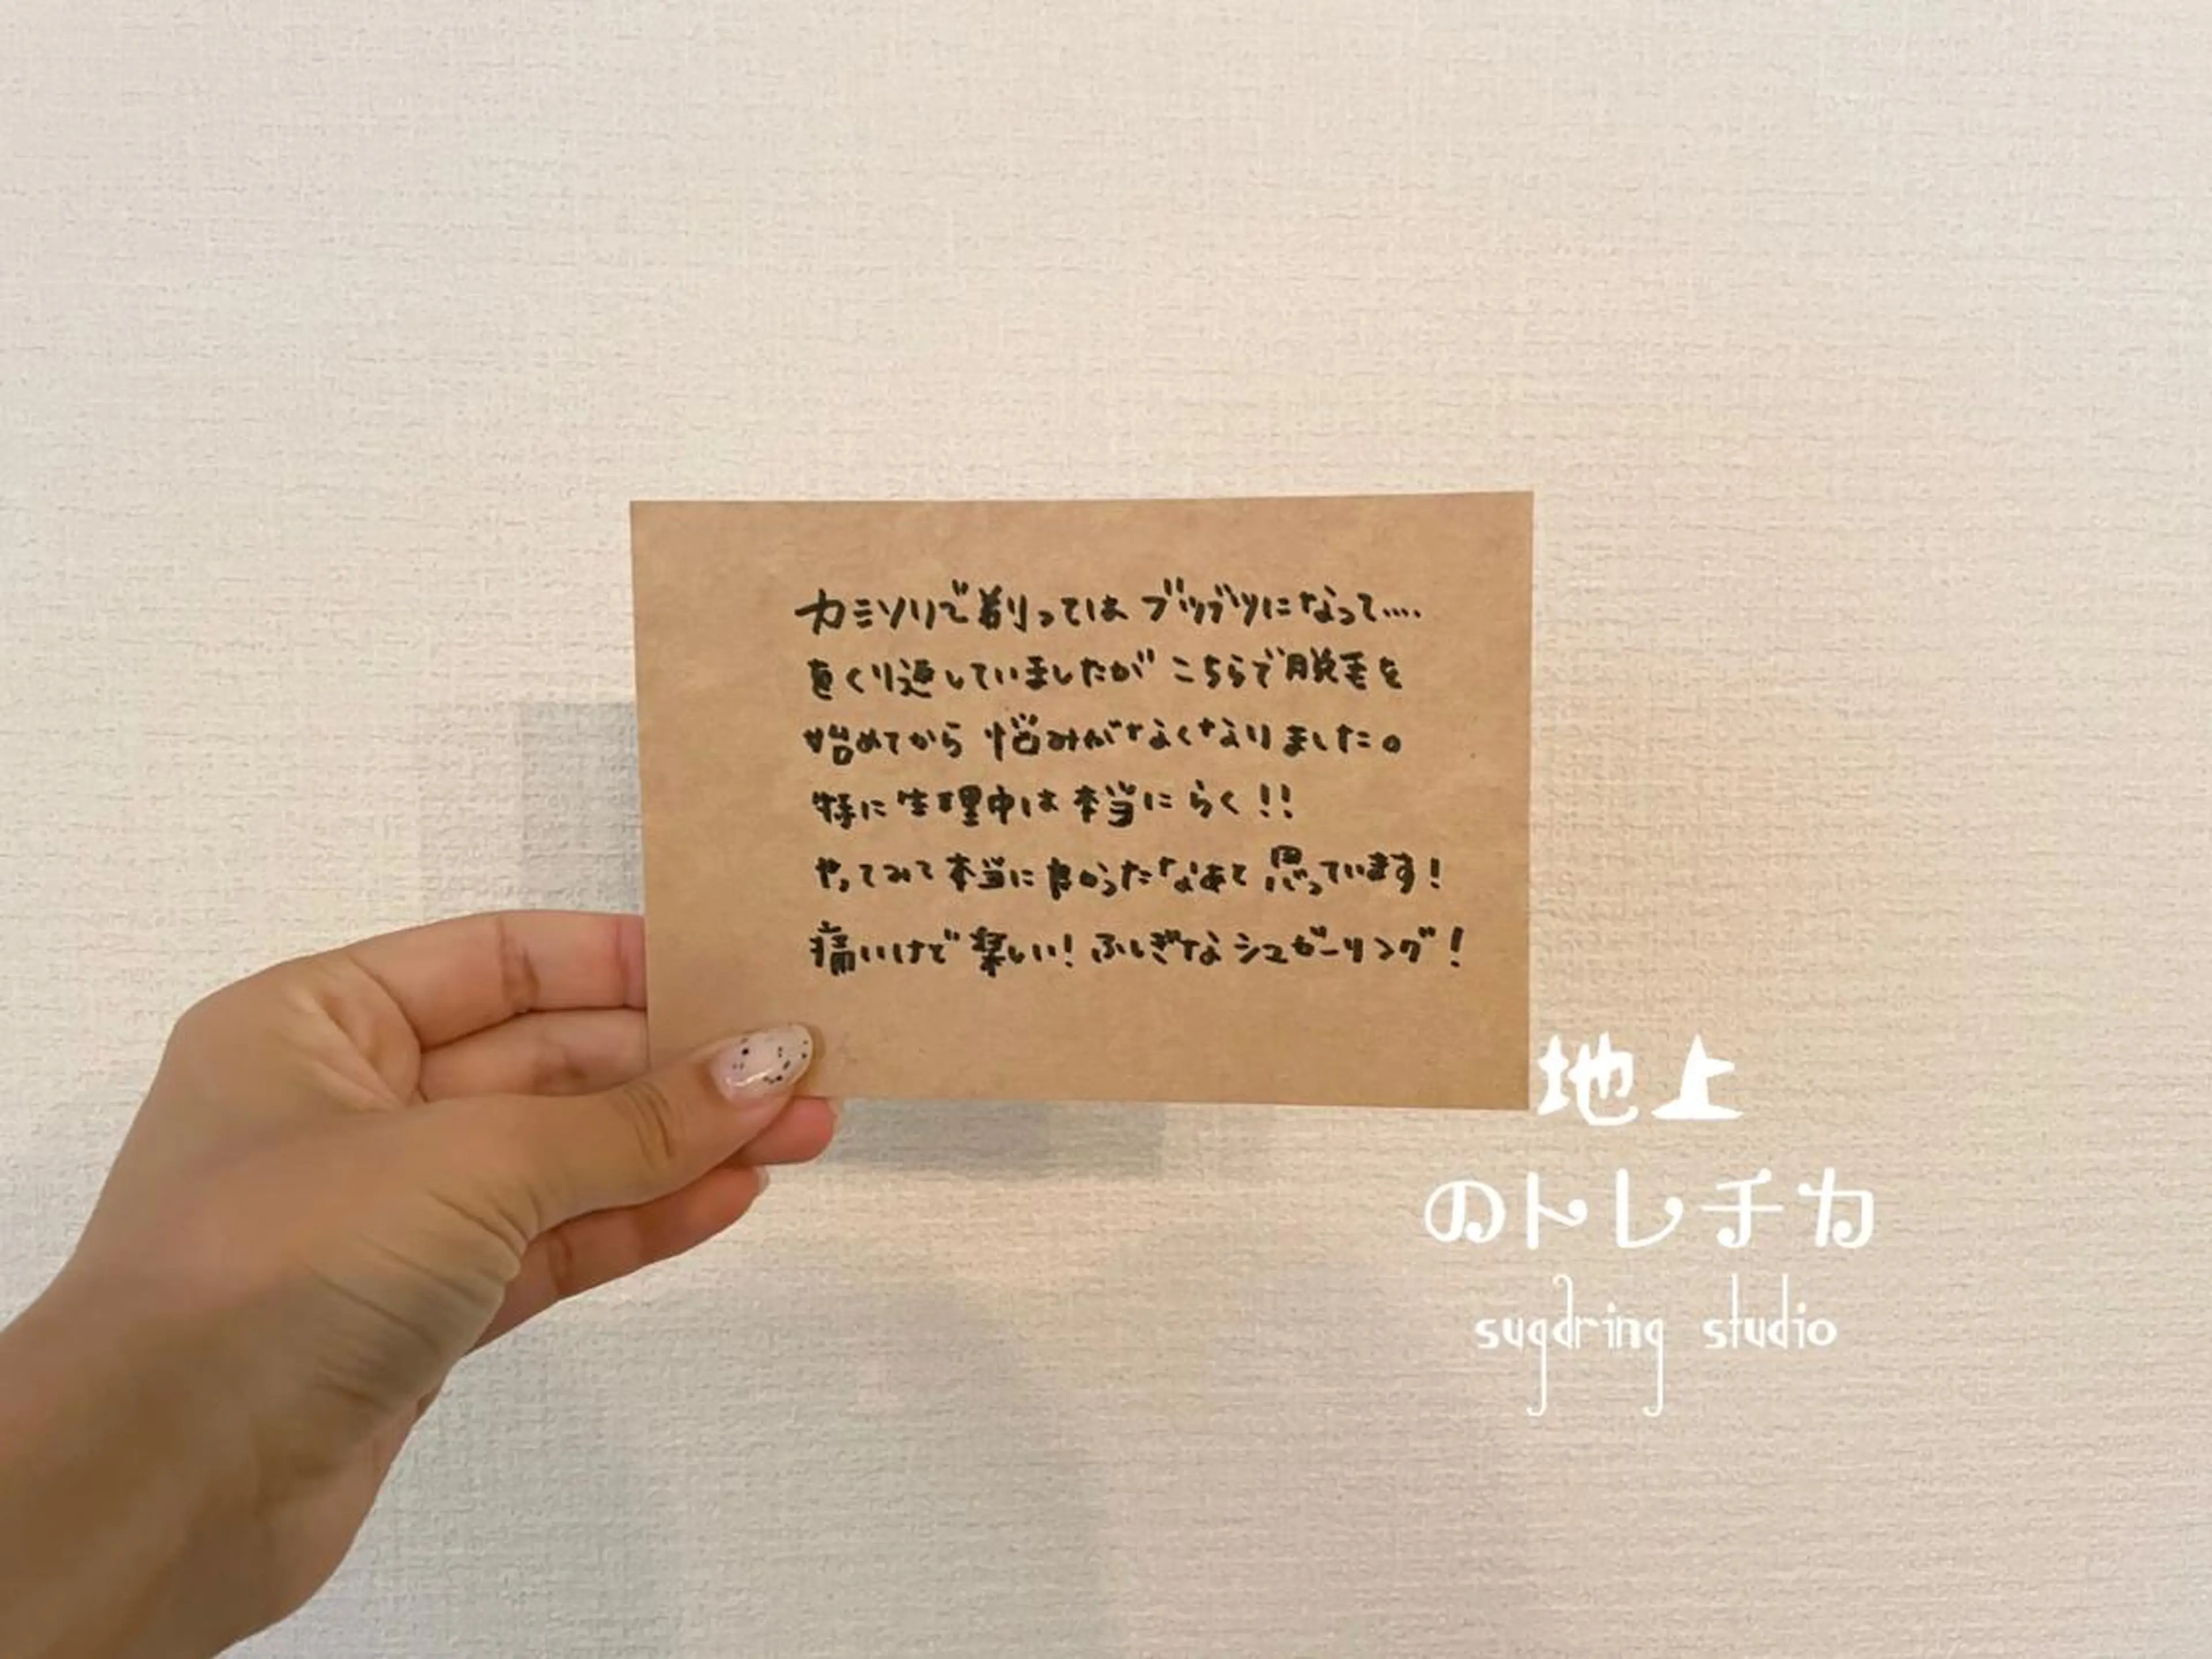 カミソリで剃ってはブツブツになって....
をくり返していましたが こちらで脱毛を
始めてから 悩みがなくなりました。
特に生理中は本当にらく!!
やってみて本当に良かったなあと思っています!
痛いけど楽しい! ふしぎなシュガーリング!
地上
のトレチカ
sugaring studio